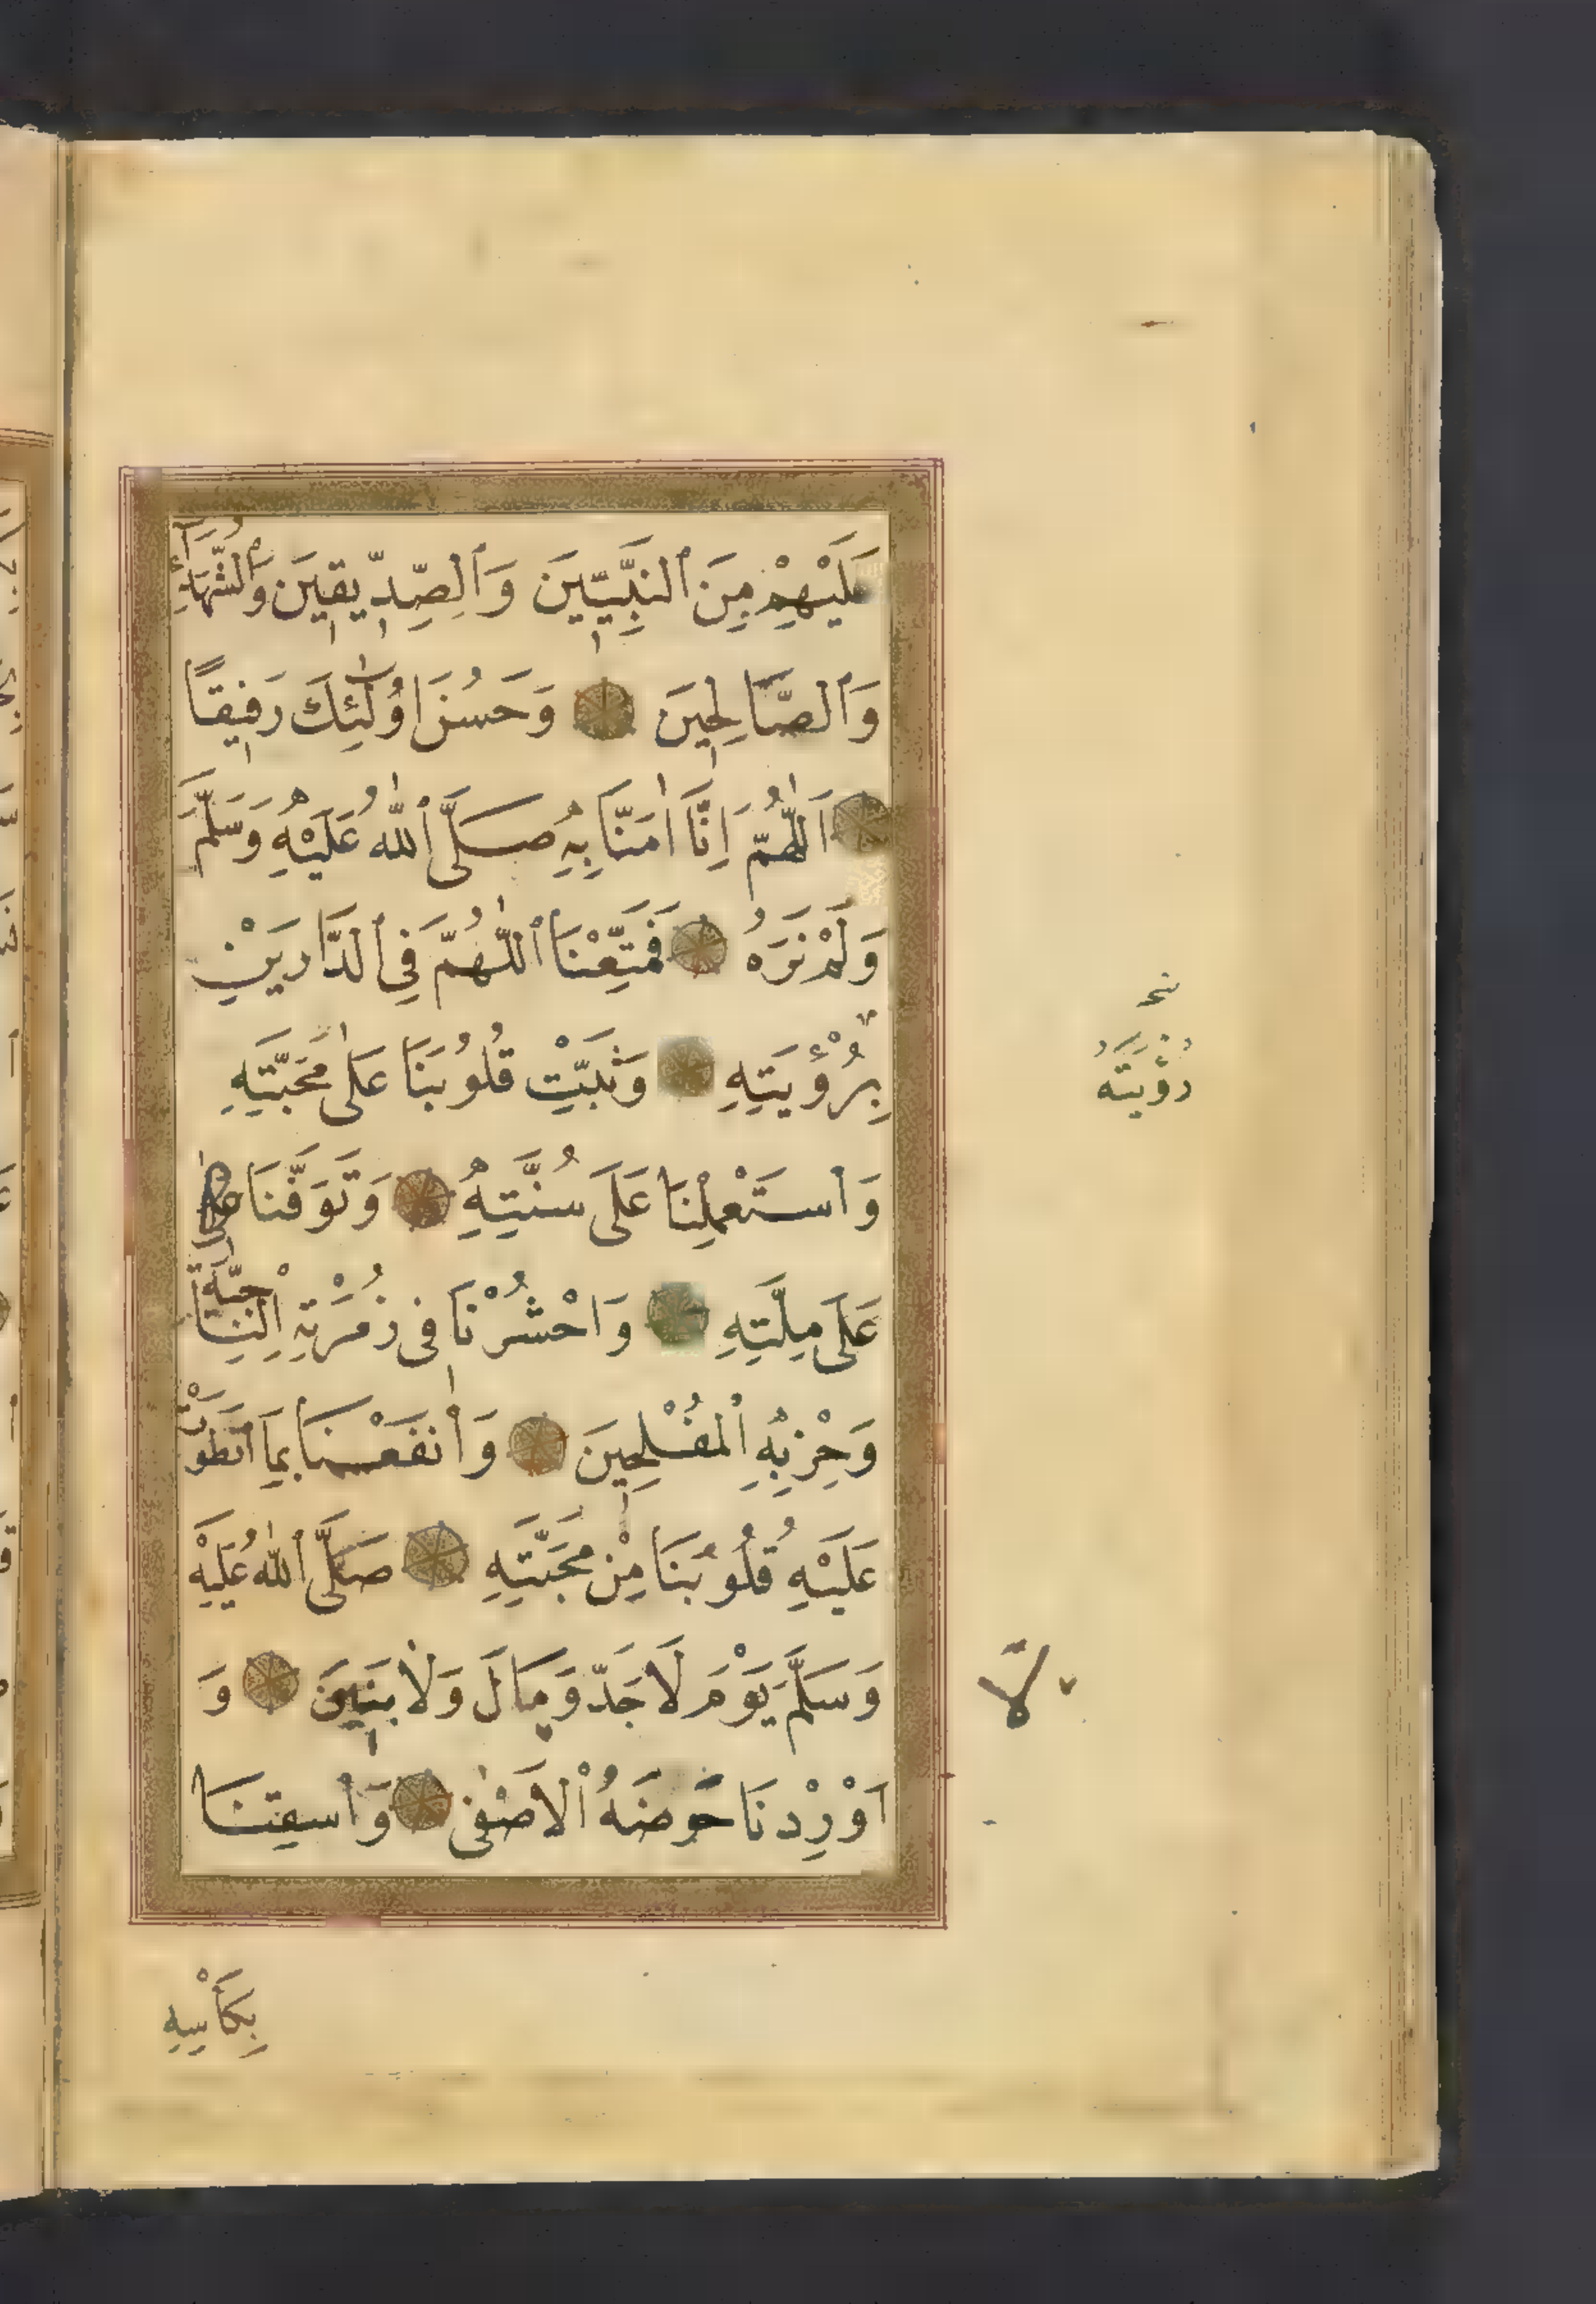 عَلَيْهِمْ مِنَ ٱلنَّبِيِّينَ وَٱلصِّدِّيقِينَ وَٱلشُّهَدَآءِ
وَٱلصَّالِحِينَ وَحَسُنَ اُولٰٓئِكَ رَفِيقًا
اَللّٰهُمَّ اِنَّا اٰمَنَّا بِهِ صَلَّى ٱللّٰهُ عَلَيْهِ وَسَلَّمَ
وَلَمْ نَرَهُ فَمَتِّعْنَا ٱللّٰهُمَّ فِي ٱلدَّارَيْنِ
بِرُؤْيَتِهِ وَثَبِّتْ قُلُوبَنَا عَلٰى مَحَبَّتِهِ
وَاسْتَعْمِلْنَا عَلَى سُنَّتِهِ وَتَوَفَّنَا
عَلَى مِلَّتِهِ وَاحْشُرْنَا فِى زُمْرَتِهِ اَلنَّاجِيَةِ
وَحِزْبِهِ ٱلْمُفْلِحِينَ وَانْفَعْنَا بِمَا انْطَوَتْ
عَلَيْهِ قُلُوبُنَا مِنْ مَحَبَّتِهِ صَلَّى ٱللّٰهُ عَلَيْهِ
وَسَلَّمَ يَوْمَ لَا جَدَّ وَمَالَ وَلَا بَنِينَ وَ
اَوْرِدْنَا حَوْضَهُ ٱلْاَصْفٰى وَاسْقِنَا
رُؤْيَتَهُ
لَا
بِكَأْسِهِ